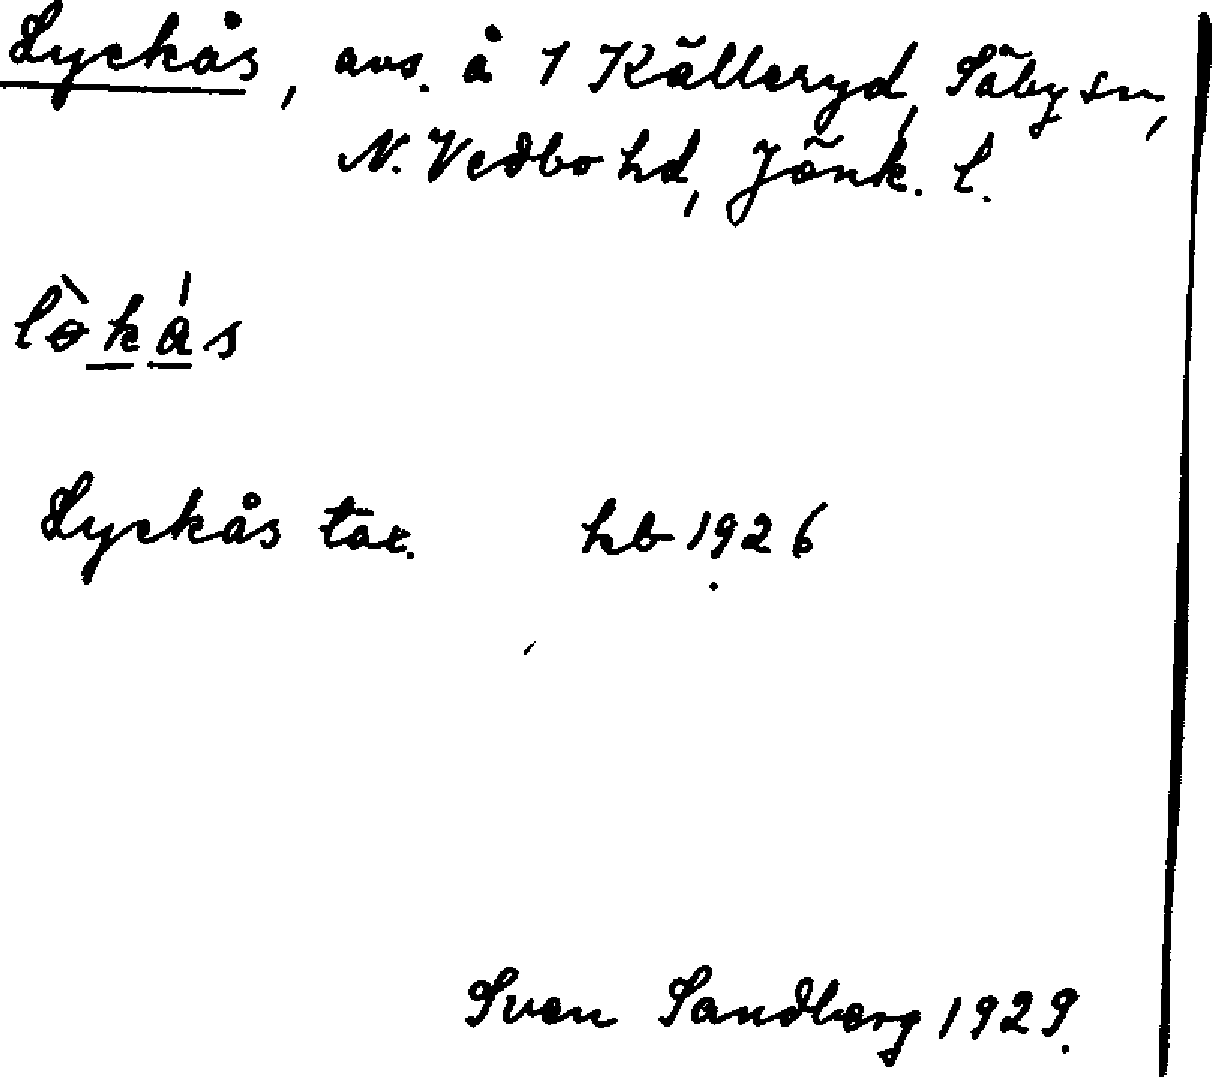 Lyckås, avs. å 1 Källeryd, Säby sn,
N. Vedbo hd, Jönk. l.
Lyckås tor. hb 1926
Sven Sandberg 1929.